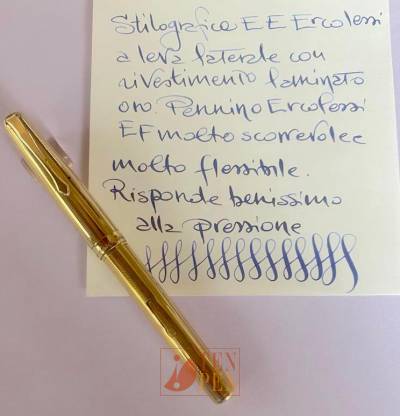 Stilografica EE Ercolessi
a leva laterale con
rivestimento laminato
oro. Pennino Ercolessi
EF molto scorrevole e
molto flessibile.
Risponde benissimo
alla pressione
TEN
PEN